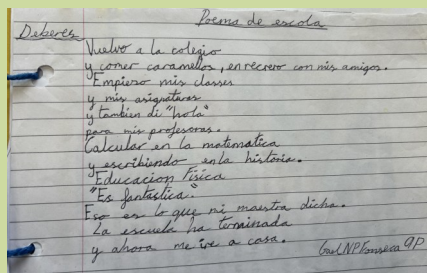 Poema de escola
Deberes
Vuelvo a la colegio
y comer caramellos, en recreo con mis amigos.
Empiezo mis classes
y mis asignaturas
y tambien di "hola"
para mis profesoras.
Calcular en la matematica
y escribiendo en la historia.
Educacion Fisica
"Es fantastica."
Eso es lo que mi maestra dicha.
La escuela ha terminada
y ahora me ire a casa.
Gael NP Fonseca 9P